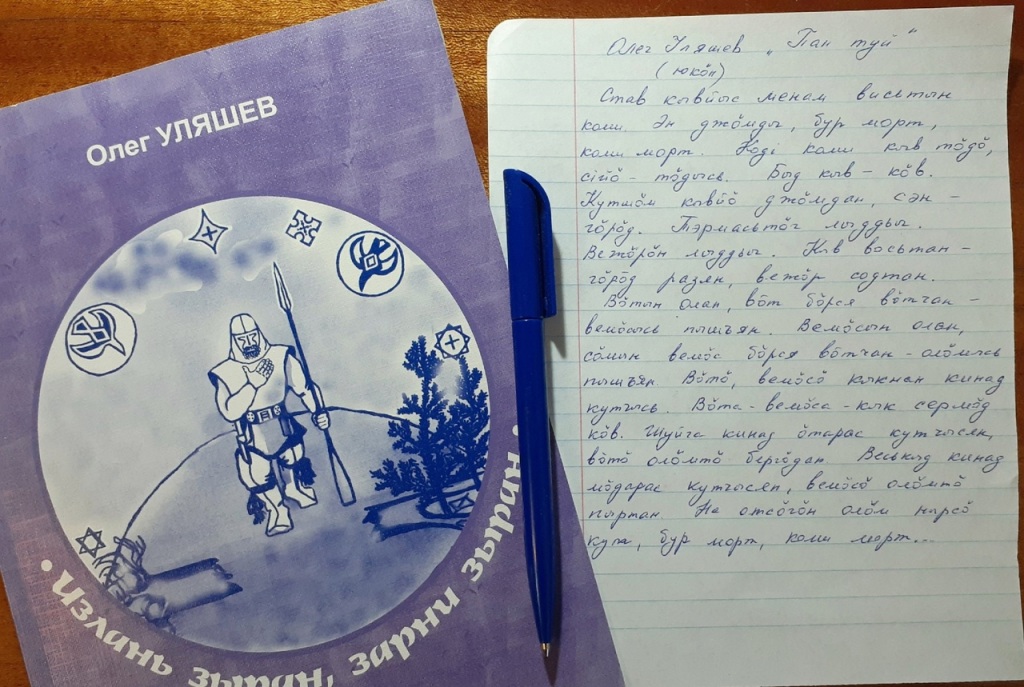 Олег УЛЯШЕВ
Олег Уляшев „Пан туй“
(юкӧн)
Став кывйыс менам висьтын
коми. Эн джӧмды, бур морт,
коми морт. Коді коми кыв тӧдӧ,
сійӧ - тӧдысь. Быд кыв - кӧв.
Кутшӧм кывйӧ джӧмдан, сэн -
гӧрӧд. Тэрмасьтӧг лыддьы.
Вежӧрӧн лыддьы. Кыв восьтан -
гӧрӧд разян, вежӧр содтан.
Вӧтын олан, вӧт бӧрся вӧтчан -
вемӧсысь пышъян. Вемӧсын олан,
сӧмын вемӧс бӧрся вӧтчан - олӧмысь
пышъян. Вӧтӧ, вемӧсӧ кыкнан кинад
кутчысь. Вӧта-вемӧса - кык сермӧд
кӧв. Шуйга кинад ӧтарас кутчысян,
вӧтӧ олӧмтӧ бергӧдан. Веськыд кинад
мӧдарас кутчысян, вемӧсӧ олӧмтӧ
пыртан. На отсӧгӧн олӧм нырсӧ
кут, бур морт, коми морт...